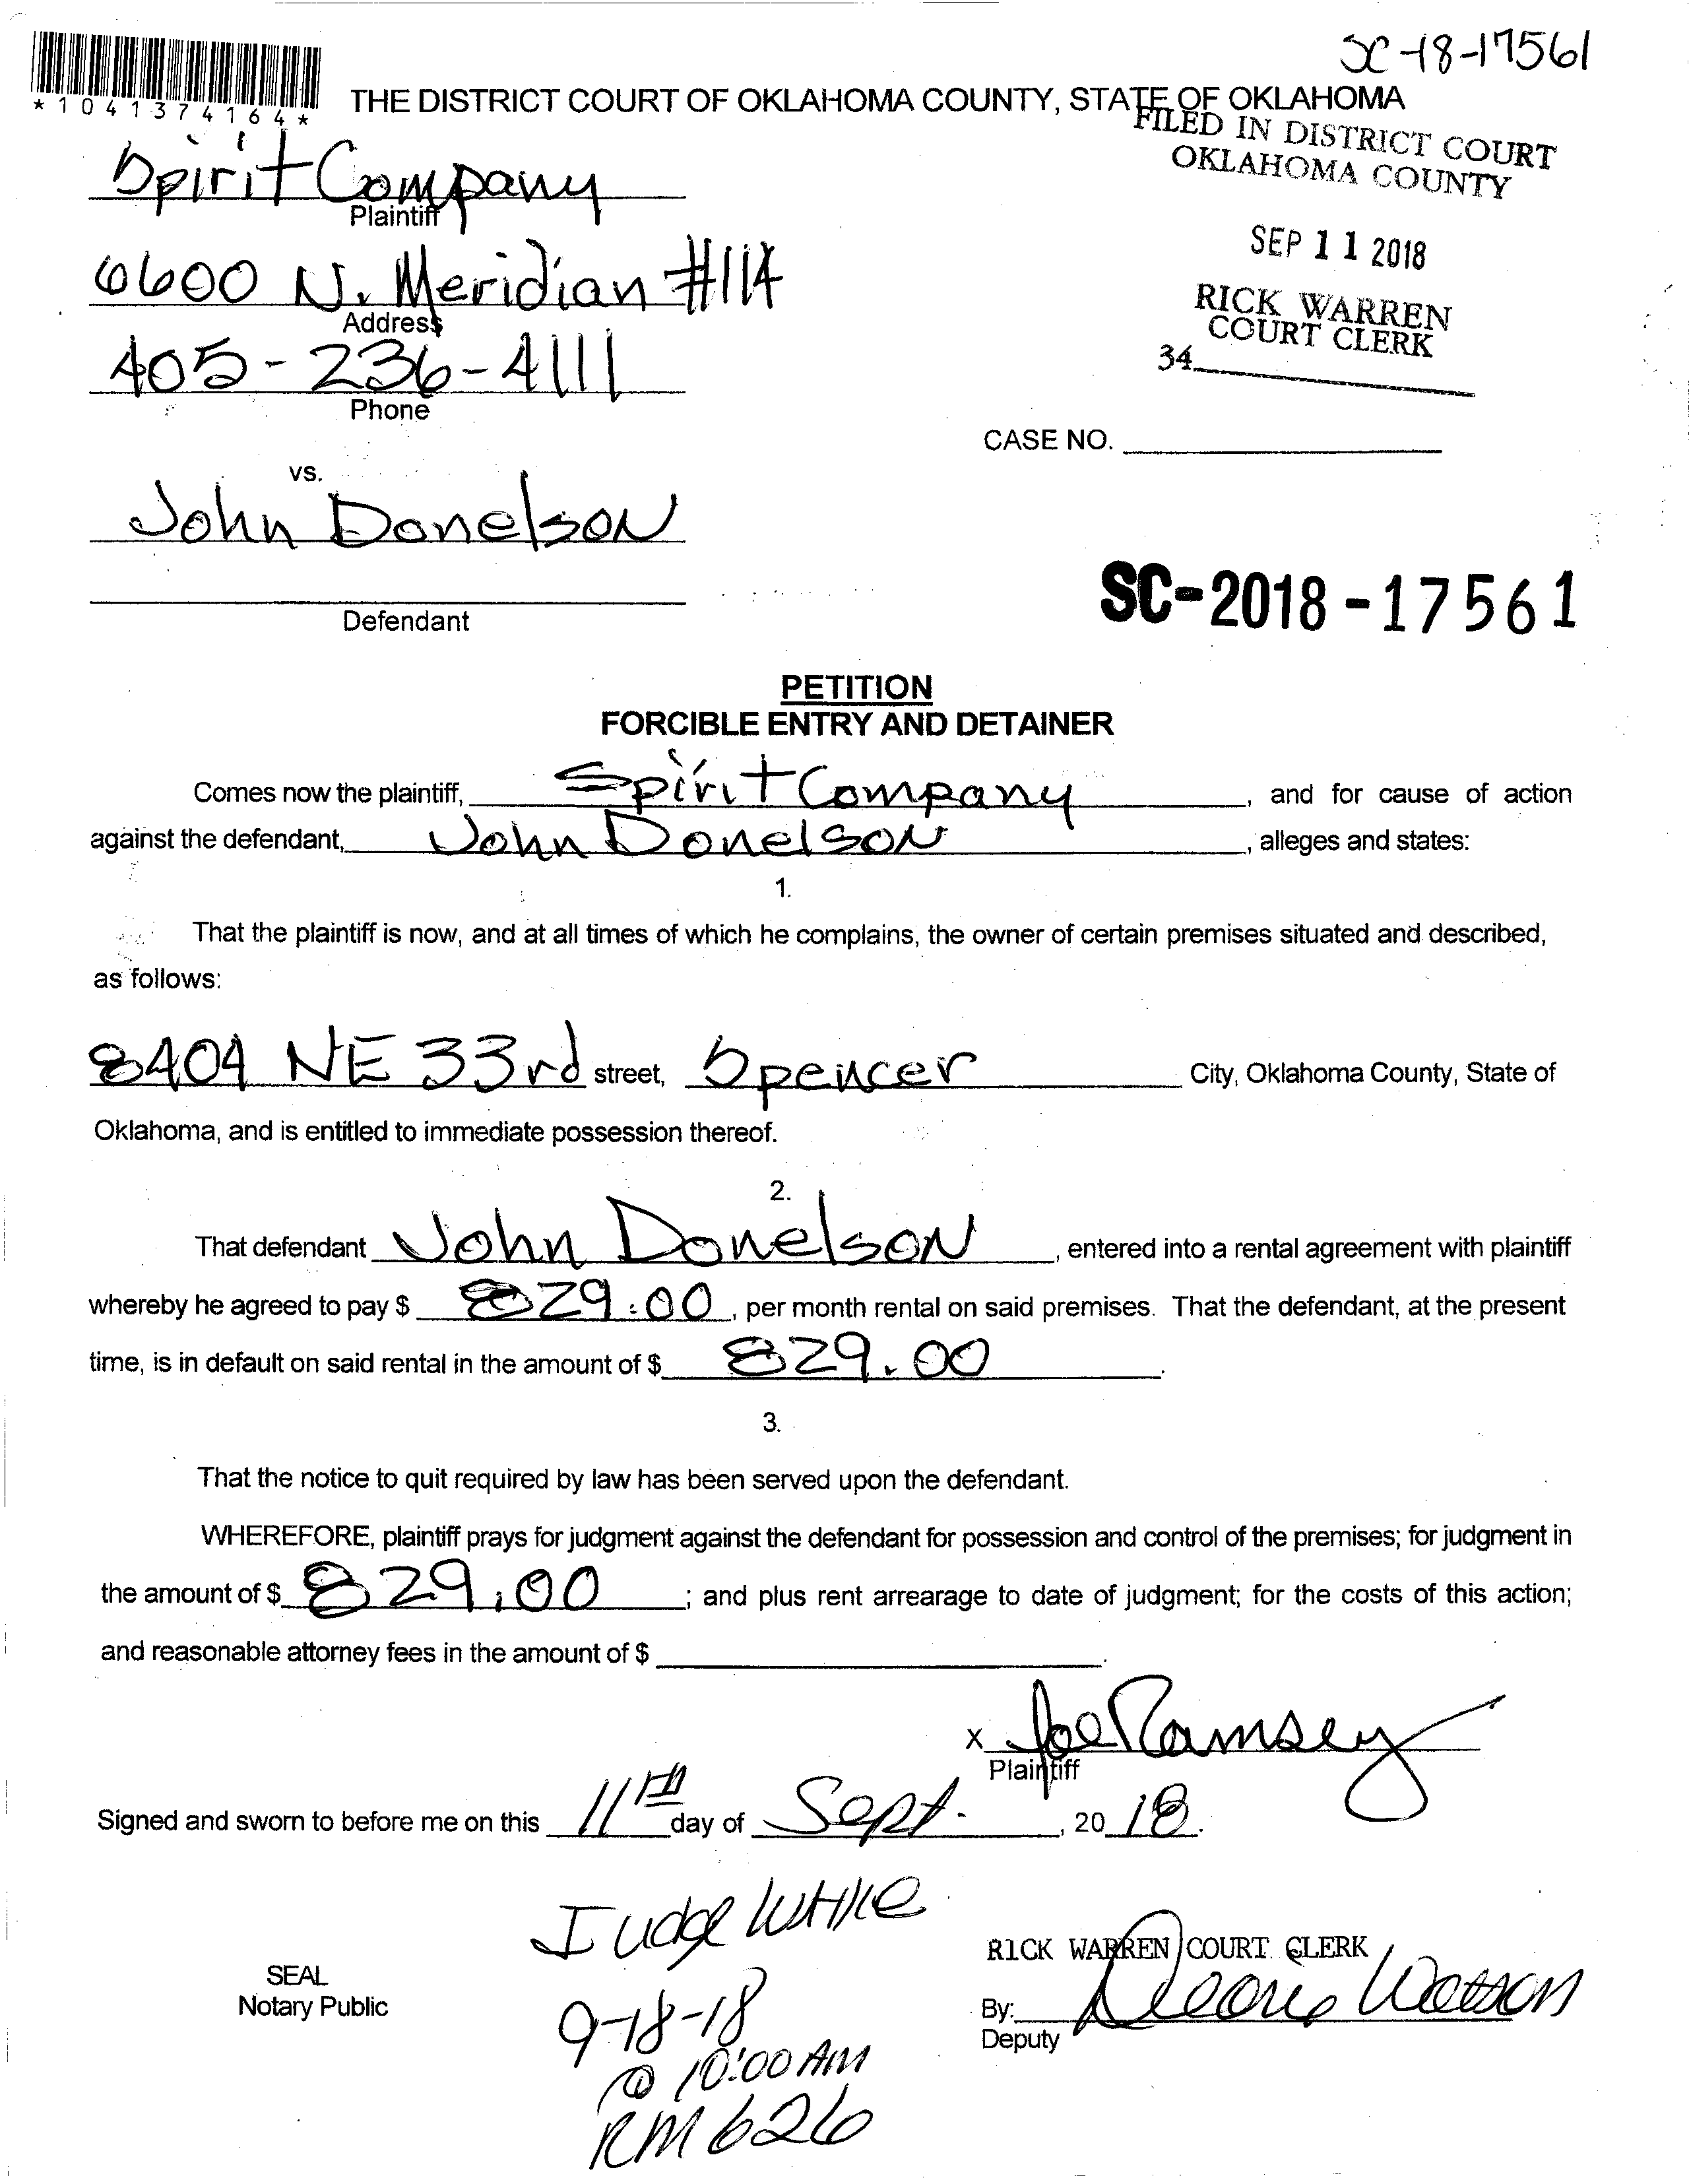 SC-18-17561
*1041374164*
THE DISTRICT COURT OF OKLAHOMA COUNTY, STATE OF OKLAHOMA
FILED IN DISTRICT COURT
OKLAHOMA COUNTY
Spirit Company
Plaintiff
SEP 11 2018
6600 N. Meridian #114
Address
RICK WARREN
COURT CLERK
34
405-236-4111
Phone
CASE NO.
vs.
John Donelson
Defendant
SC-2018-17561
PETITION
FORCIBLE ENTRY AND DETAINER
Comes now the plaintiff, Spirit Company, and for cause of action
against the defendant, John Donelson, alleges and states:
1.
That the plaintiff is now, and at all times of which he complains, the owner of certain premises situated and described,
as follows:
8404 NE 33rd street, Spencer City, Oklahoma County, State of
Oklahoma, and is entitled to immediate possession thereof.
2.
That defendant John Donelson, entered into a rental agreement with plaintiff
whereby he agreed to pay $ 829.00, per month rental on said premises. That the defendant, at the present
time, is in default on said rental in the amount of $ 829.00.
3.
That the notice to quit required by law has been served upon the defendant.
WHEREFORE, plaintiff prays for judgment against the defendant for possession and control of the premises; for judgment in
the amount of $ 829.00; and plus rent arrearage to date of judgment; for the costs of this action;
and reasonable attorney fees in the amount of $ .
X Joe Ramsey
Plaintiff
Signed and sworn to before me on this 11th day of Sept. , 20 18.
Judge
RICK WARREN COURT CLERK
SEAL
Notary Public
By: Watson
Deputy
9-18-18
@ 10:00 AM
RM 626